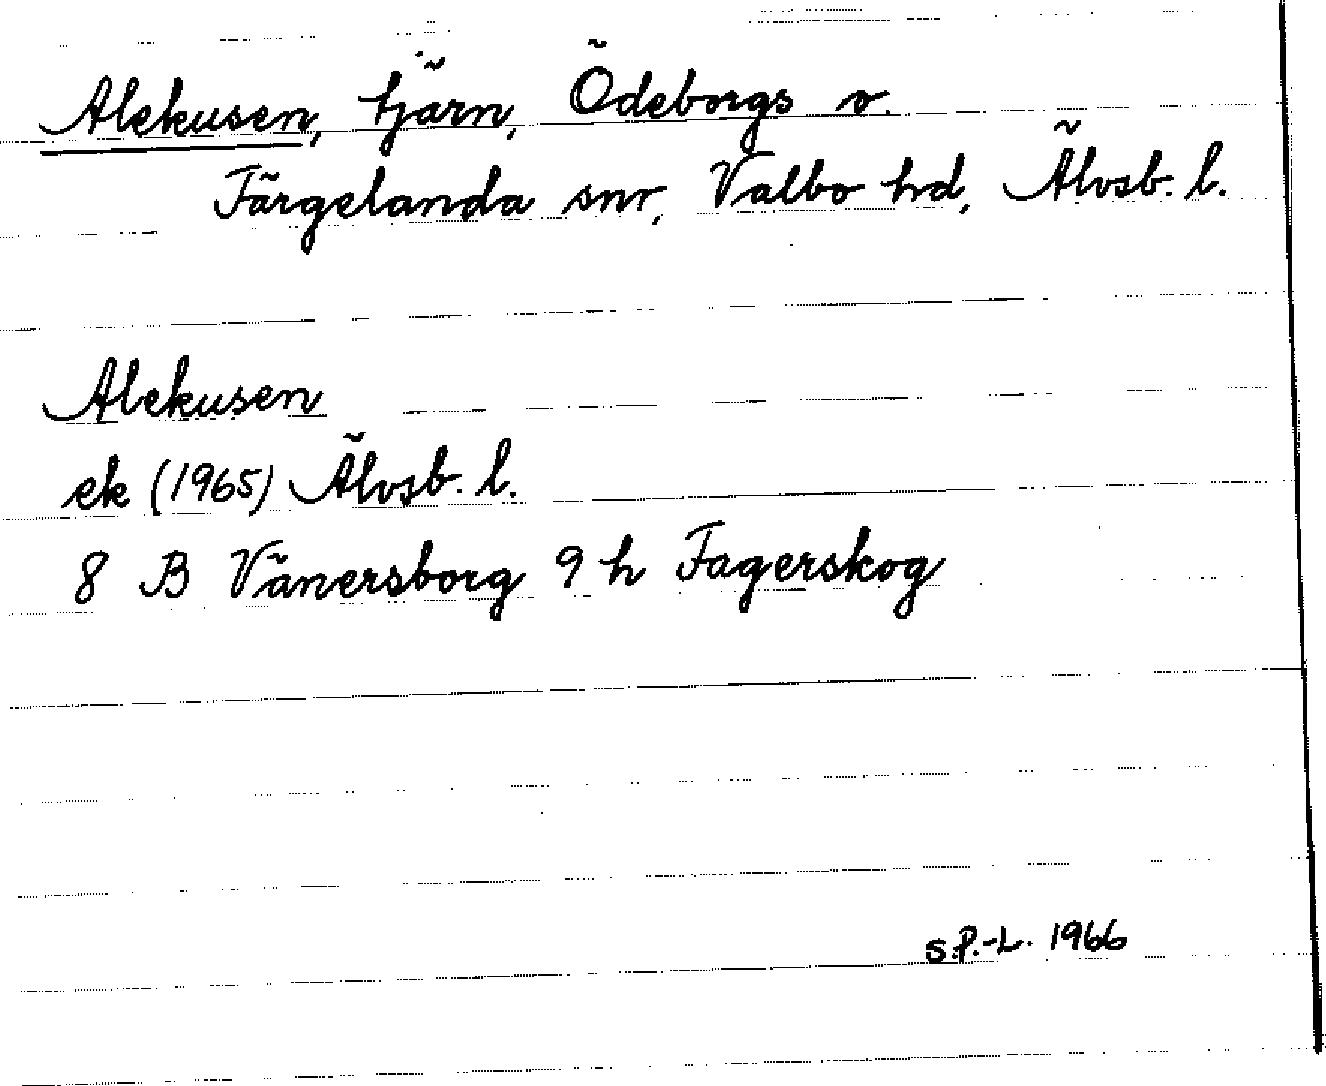 Alekusen, tjärn, Ödeborgs o.
Färgelanda snr, Valbo hd, Älvsb. l.
Alekusen
ek (1965) Älvsb. l.
8 B Vänersborg 9 h Fagerskog
S.P.-L. 1966